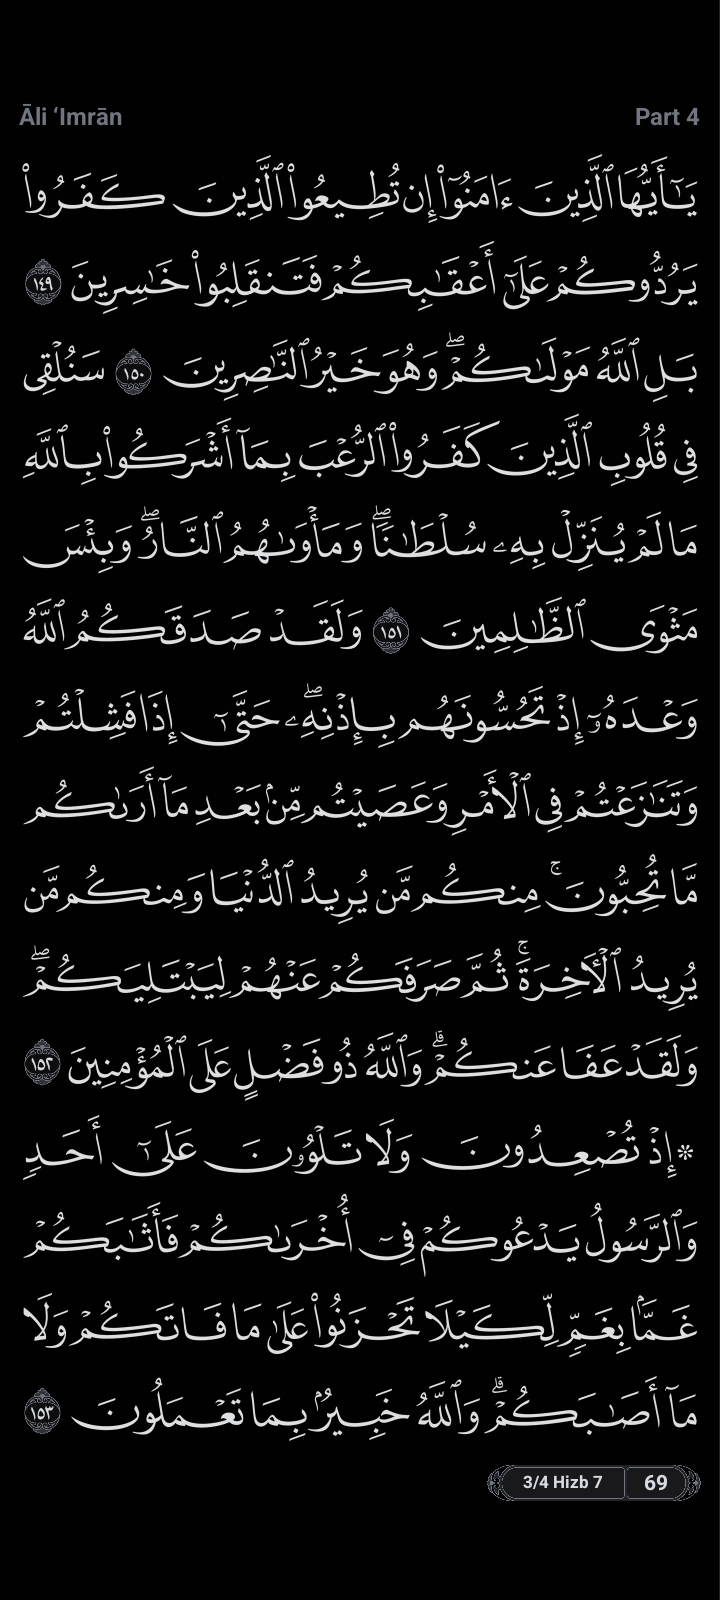 Āli ‘Imrān
Part 4
يَـٰٓأَيُّهَا ٱلَّذِينَ ءَامَنُوٓا۟ إِن تُطِيعُوا۟ ٱلَّذِينَ كَفَرُوا۟
يَرُدُّوكُمْ عَلَىٰٓ أَعْقَـٰبِكُمْ فَتَنقَلِبُوا۟ خَـٰسِرِينَ ١٤٩
بَلِ ٱللَّهُ مَوْلَىٰكُمْ ۖ وَهُوَ خَيْرُ ٱلنَّـٰصِرِينَ ١٥٠ سَنُلْقِى
فِى قُلُوبِ ٱلَّذِينَ كَفَرُوا۟ ٱلرُّعْبَ بِمَآ أَشْرَكُوا۟ بِٱللَّهِ
مَا لَمْ يُنَزِّلْ بِهِۦ سُلْطَـٰنًا ۖ وَمَأْوَىٰهُمُ ٱلنَّارُ ۖ وَبِئْسَ
مَثْوَى ٱلظَّـٰلِمِينَ ١٥١ وَلَقَدْ صَدَقَكُمُ ٱللَّهُ
وَعْدَهُۥٓ إِذْ تَحُسُّونَهُم بِإِذْنِهِۦ ۖ حَتَّىٰٓ إِذَا فَشِلْتُمْ
وَتَنَـٰزَعْتُمْ فِى ٱلْأَمْرِ وَعَصَيْتُم مِّنۢ بَعْدِ مَآ أَرَىٰكُم
مَّا تُحِبُّونَ ۚ مِنكُم مَّن يُرِيدُ ٱلدُّنْيَا وَمِنكُم مَّن
يُرِيدُ ٱلْـَٔاخِرَةَ ۚ ثُمَّ صَرَفَكُمْ عَنْهُمْ لِيَبْتَلِيَكُمْ ۖ
وَلَقَدْ عَفَا عَنكُمْ ۗ وَٱللَّهُ ذُو فَضْلٍ عَلَى ٱلْمُؤْمِنِينَ ١٥٢
* إِذْ تُصْعِدُونَ وَلَا تَلْوُۥنَ عَلَىٰٓ أَحَدٍ
وَٱلرَّسُولُ يَدْعُوكُمْ فِىٓ أُخْرَىٰكُمْ فَأَثَـٰبَكُمْ
غَمًّۢا بِغَمٍّ لِّكَيْلَا تَحْزَنُوا۟ عَلَىٰ مَا فَاتَكُمْ وَلَا
مَآ أَصَـٰبَكُمْ ۗ وَٱللَّهُ خَبِيرٌۢ بِمَا تَعْمَلُونَ ١٥٣
3/4 Hizb 7
69